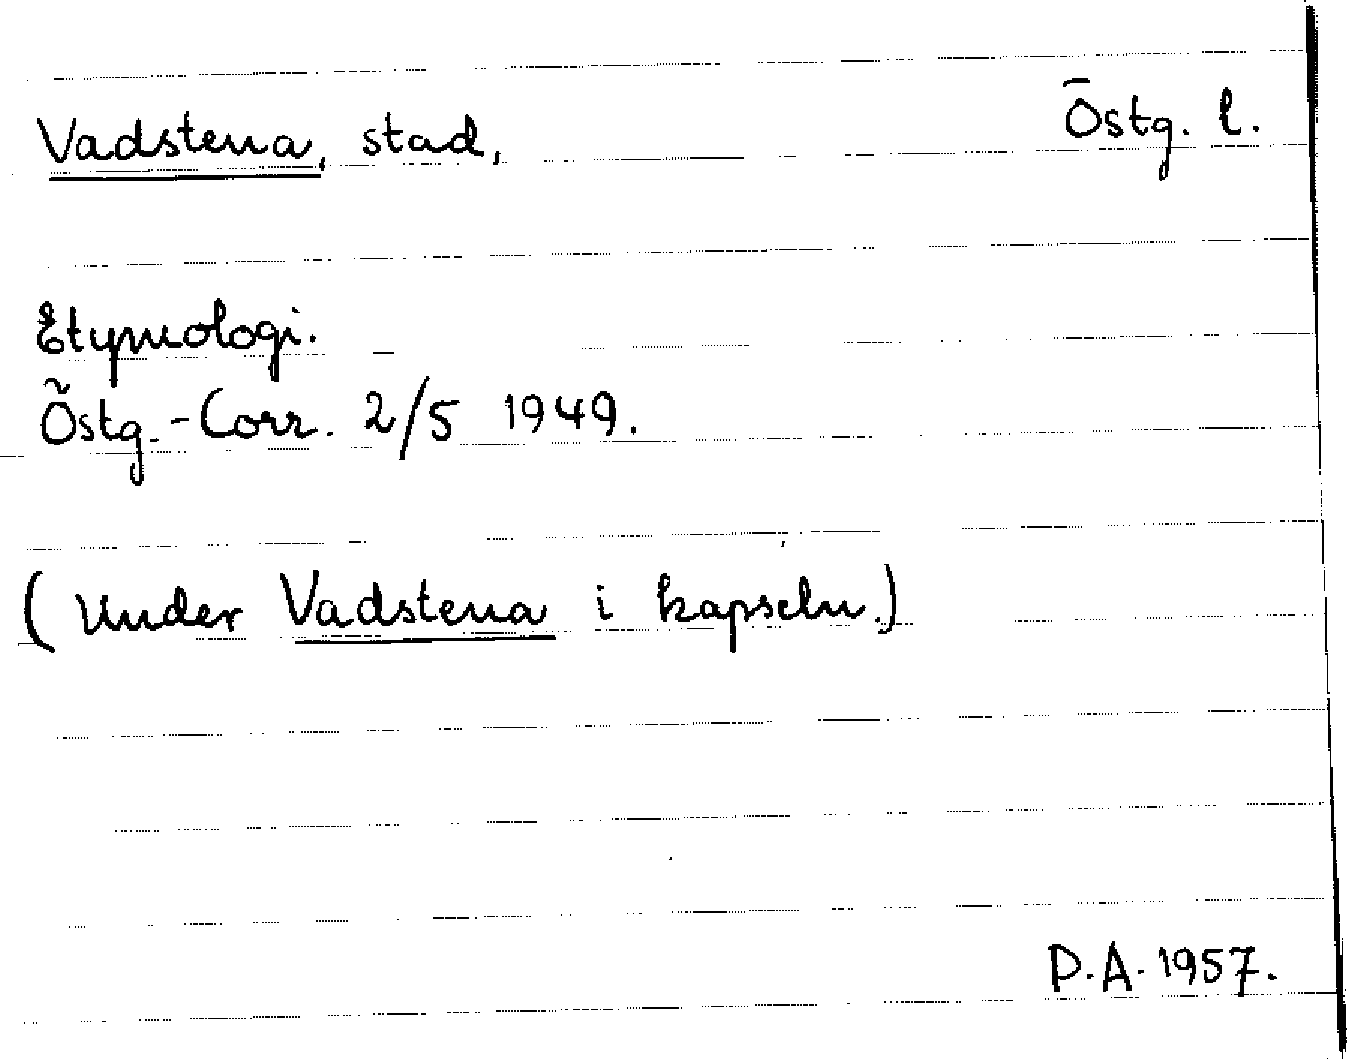 Vadstena, stad, Östg. l.
Etymologi.
Östg.-Corr. 2/5 1949.
(Under Vadstena i kapseln.)
D.A. 1957.